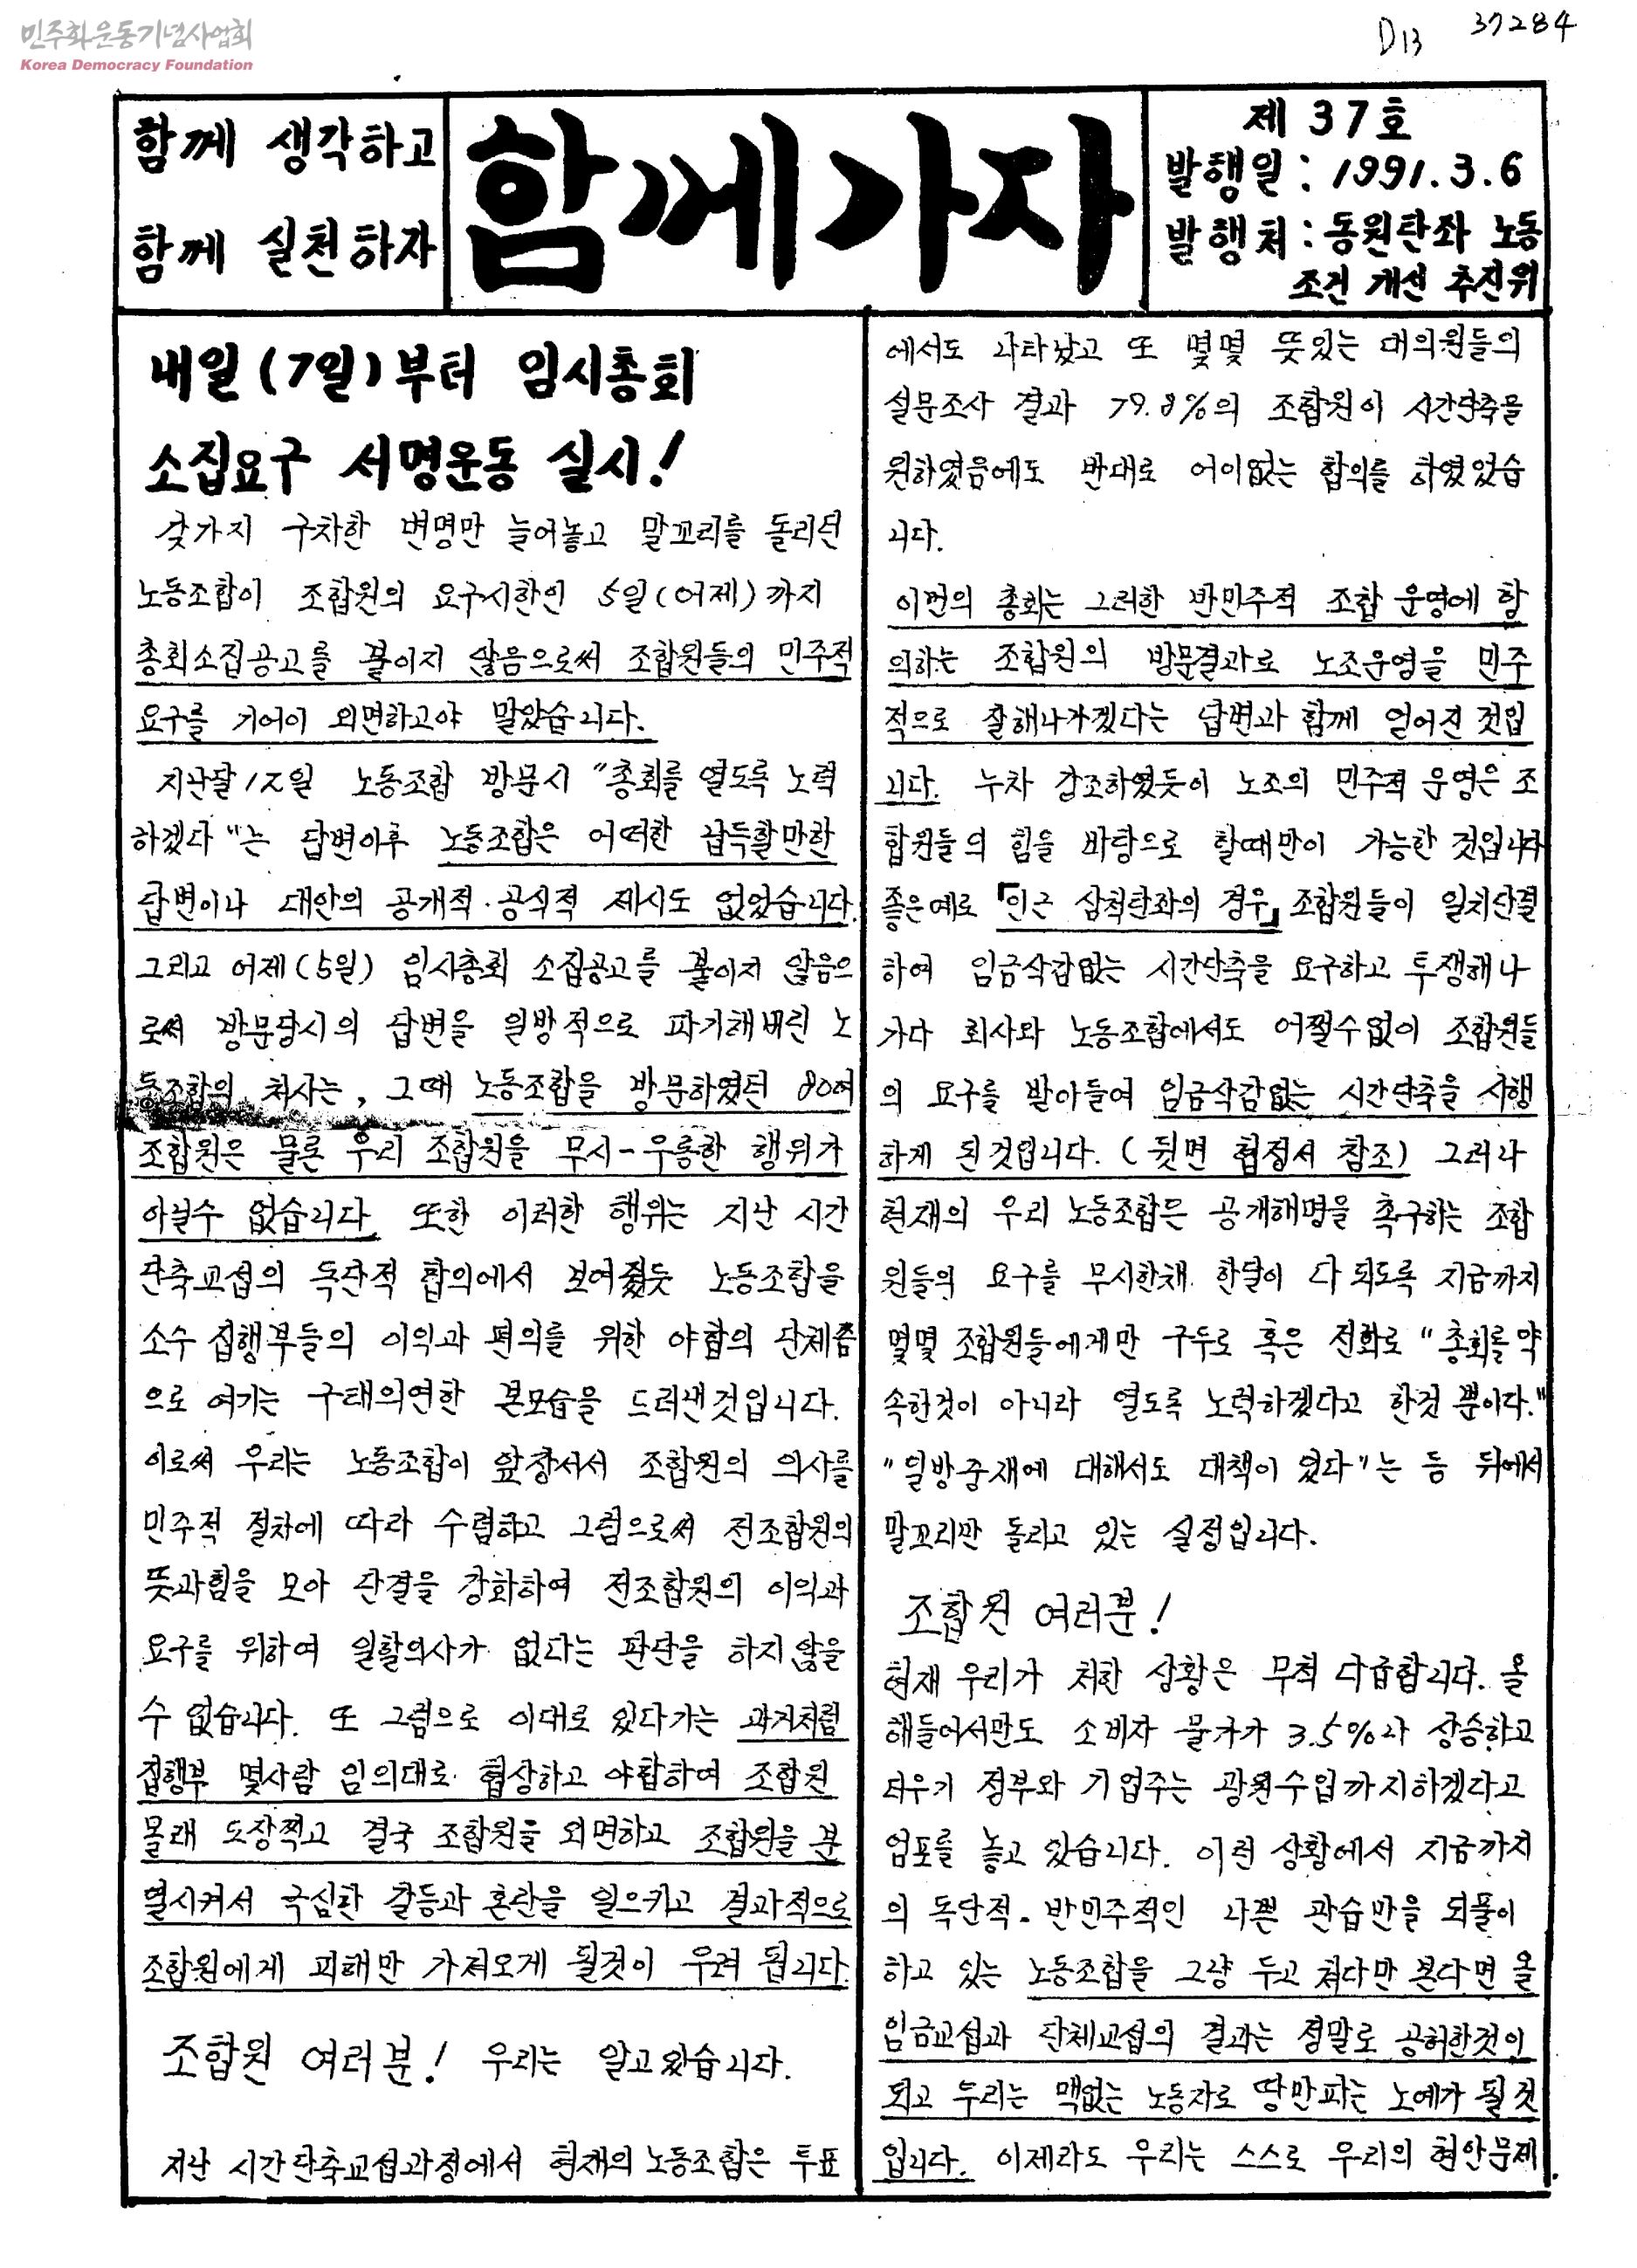 민주화운동기념사업회
Korea Democracy Foundation
D13 37284
함께 생각하고
함께 실천하자
함께가자
제 37호
발행일 : 1991.3.6
발행처 : 동원탄좌 노동
조건 개선 추진위
내일(7일)부터 임시총회
소집요구 서명운동 실시!
갖가지 구차한 변명만 늘어놓고 말꼬리를 돌리던
노동조합이 조합원의 요구시한인 5일(어제)까지
총회소집공고를 붙이지 않음으로써 조합원들의 민주적
요구를 기어이 외면하고야 말았습니다.
지난달 12일 노동조합 방문시 "총회를 열도록 노력
하겠다"는 답변이후 노동조합은 어떠한 납득할만한
답변이나 대안의 공개적·공식적 제시도 없었습니다.
그리고 어제(5일) 임시총회 소집공고를 붙이지 않음으
로써 방문당시의 답변을 일방적으로 파기해버린 노
동조합의 처사는, 그때 노동조합을 방문하였던 80여
조합원은 물론 우리 조합원을 무시-우롱한 행위가
아닐수 없습니다. 또한 이러한 행위는 지난 시간
단축교섭의 독단적 합의에서 보여줬듯 노동조합을
소수 집행부들의 이익과 편의를 위한 야합의 단체쯤
으로 여기는 구태의연한 본모습을 드러낸것입니다.
이로써 우리는 노동조합이 앞장서서 조합원의 의사를
민주적 절차에 따라 수렴하고 그럼으로써 전조합원의
뜻과힘을 모아 단결을 강화하여 전조합원의 이익과
요구를 위하여 일할의사가 없다는 판단을 하지않을
수 없습니다. 또 그럼으로 이대로 있다가는 과거처럼
집행부 몇사람 임의대로 협상하고 야합하여 조합원
몰래 도장찍고 결국 조합원을 외면하고 조합원을 분
열시켜서 극심한 갈등과 혼란을 일으키고 결과적으로
조합원에게 피해만 가져오게 될것이 우려 됩니다.
조합원 여러분! 우리는 알고있습니다.
지난 시간단축교섭과정에서 현재의 노동조합은 투표
에서도 나타났고 또 몇몇 뜻있는 대의원들의
설문조사 결과 79.8%의 조합원이 시간단축을
원하였음에도 반대로 어이없는 합의를 하였었습
니다.
이번의 총회는 그러한 반민주적 조합 운영에 항
의하는 조합원의 방문결과로 노조운영을 민주
적으로 잘해나가겠다는 답변과 함께 얻어진 것입
니다. 누차 강조하였듯이 노조의 민주적 운영은 조
합원들의 힘을 바탕으로 할때만이 가능한 것입니다
좋은예로 「인근 삼척탄좌의 경우」 조합원들이 일치단결
하여 임금삭감없는 시간단축을 요구하고 투쟁해나
가다 회사와 노동조합에서도 어쩔수없이 조합원들
의 요구를 받아들여 임금삭감없는 시간단축을 시행
하게 된것입니다. (뒷면 협정서 참조) 그러나
현재의 우리 노동조합은 공개해명을 촉구하는 조합
원들의 요구를 무시한채 한달이 다 되도록 지금까지
몇몇 조합원들에게만 구두로 혹은 전화로 "총회를 약
속한것이 아니라 열도록 노력하겠다고 한것 뿐이다."
"일방중재에 대해서도 대책이 있다"는 등 뒤에서
말꼬리만 돌리고 있는 실정입니다.
조합원 여러분!
현재 우리가 처한 상황은 무척 다급합니다. 올
해들어서만도 소비자 물가가 3.5%나 상승하고
더우기 정부와 기업주는 광원수입까지하겠다고
엄포를 놓고 있습니다. 이런 상황에서 지금까지
의 독단적·반민주적인 나쁜 관습만을 되풀이
하고 있는 노동조합을 그냥 두고 쳐다만 본다면 올
임금교섭과 단체교섭의 결과는 정말로 공허한것이
되고 우리는 맥없는 노동자로 땅만파는 노예가 될것
입니다. 이제라도 우리는 스스로 우리의 현안문제